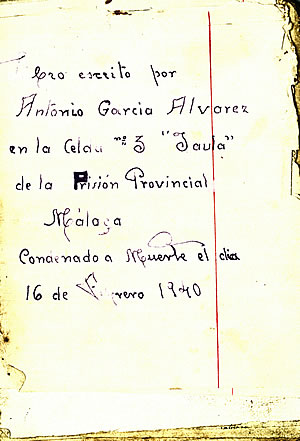 escrito por
Antonio Garcia Alvarez
en la Celda nº 3 "Jaula"
de la Prisión Provincial
Málaga
Condenado a Muerte el dia
16 de Febrero 1940